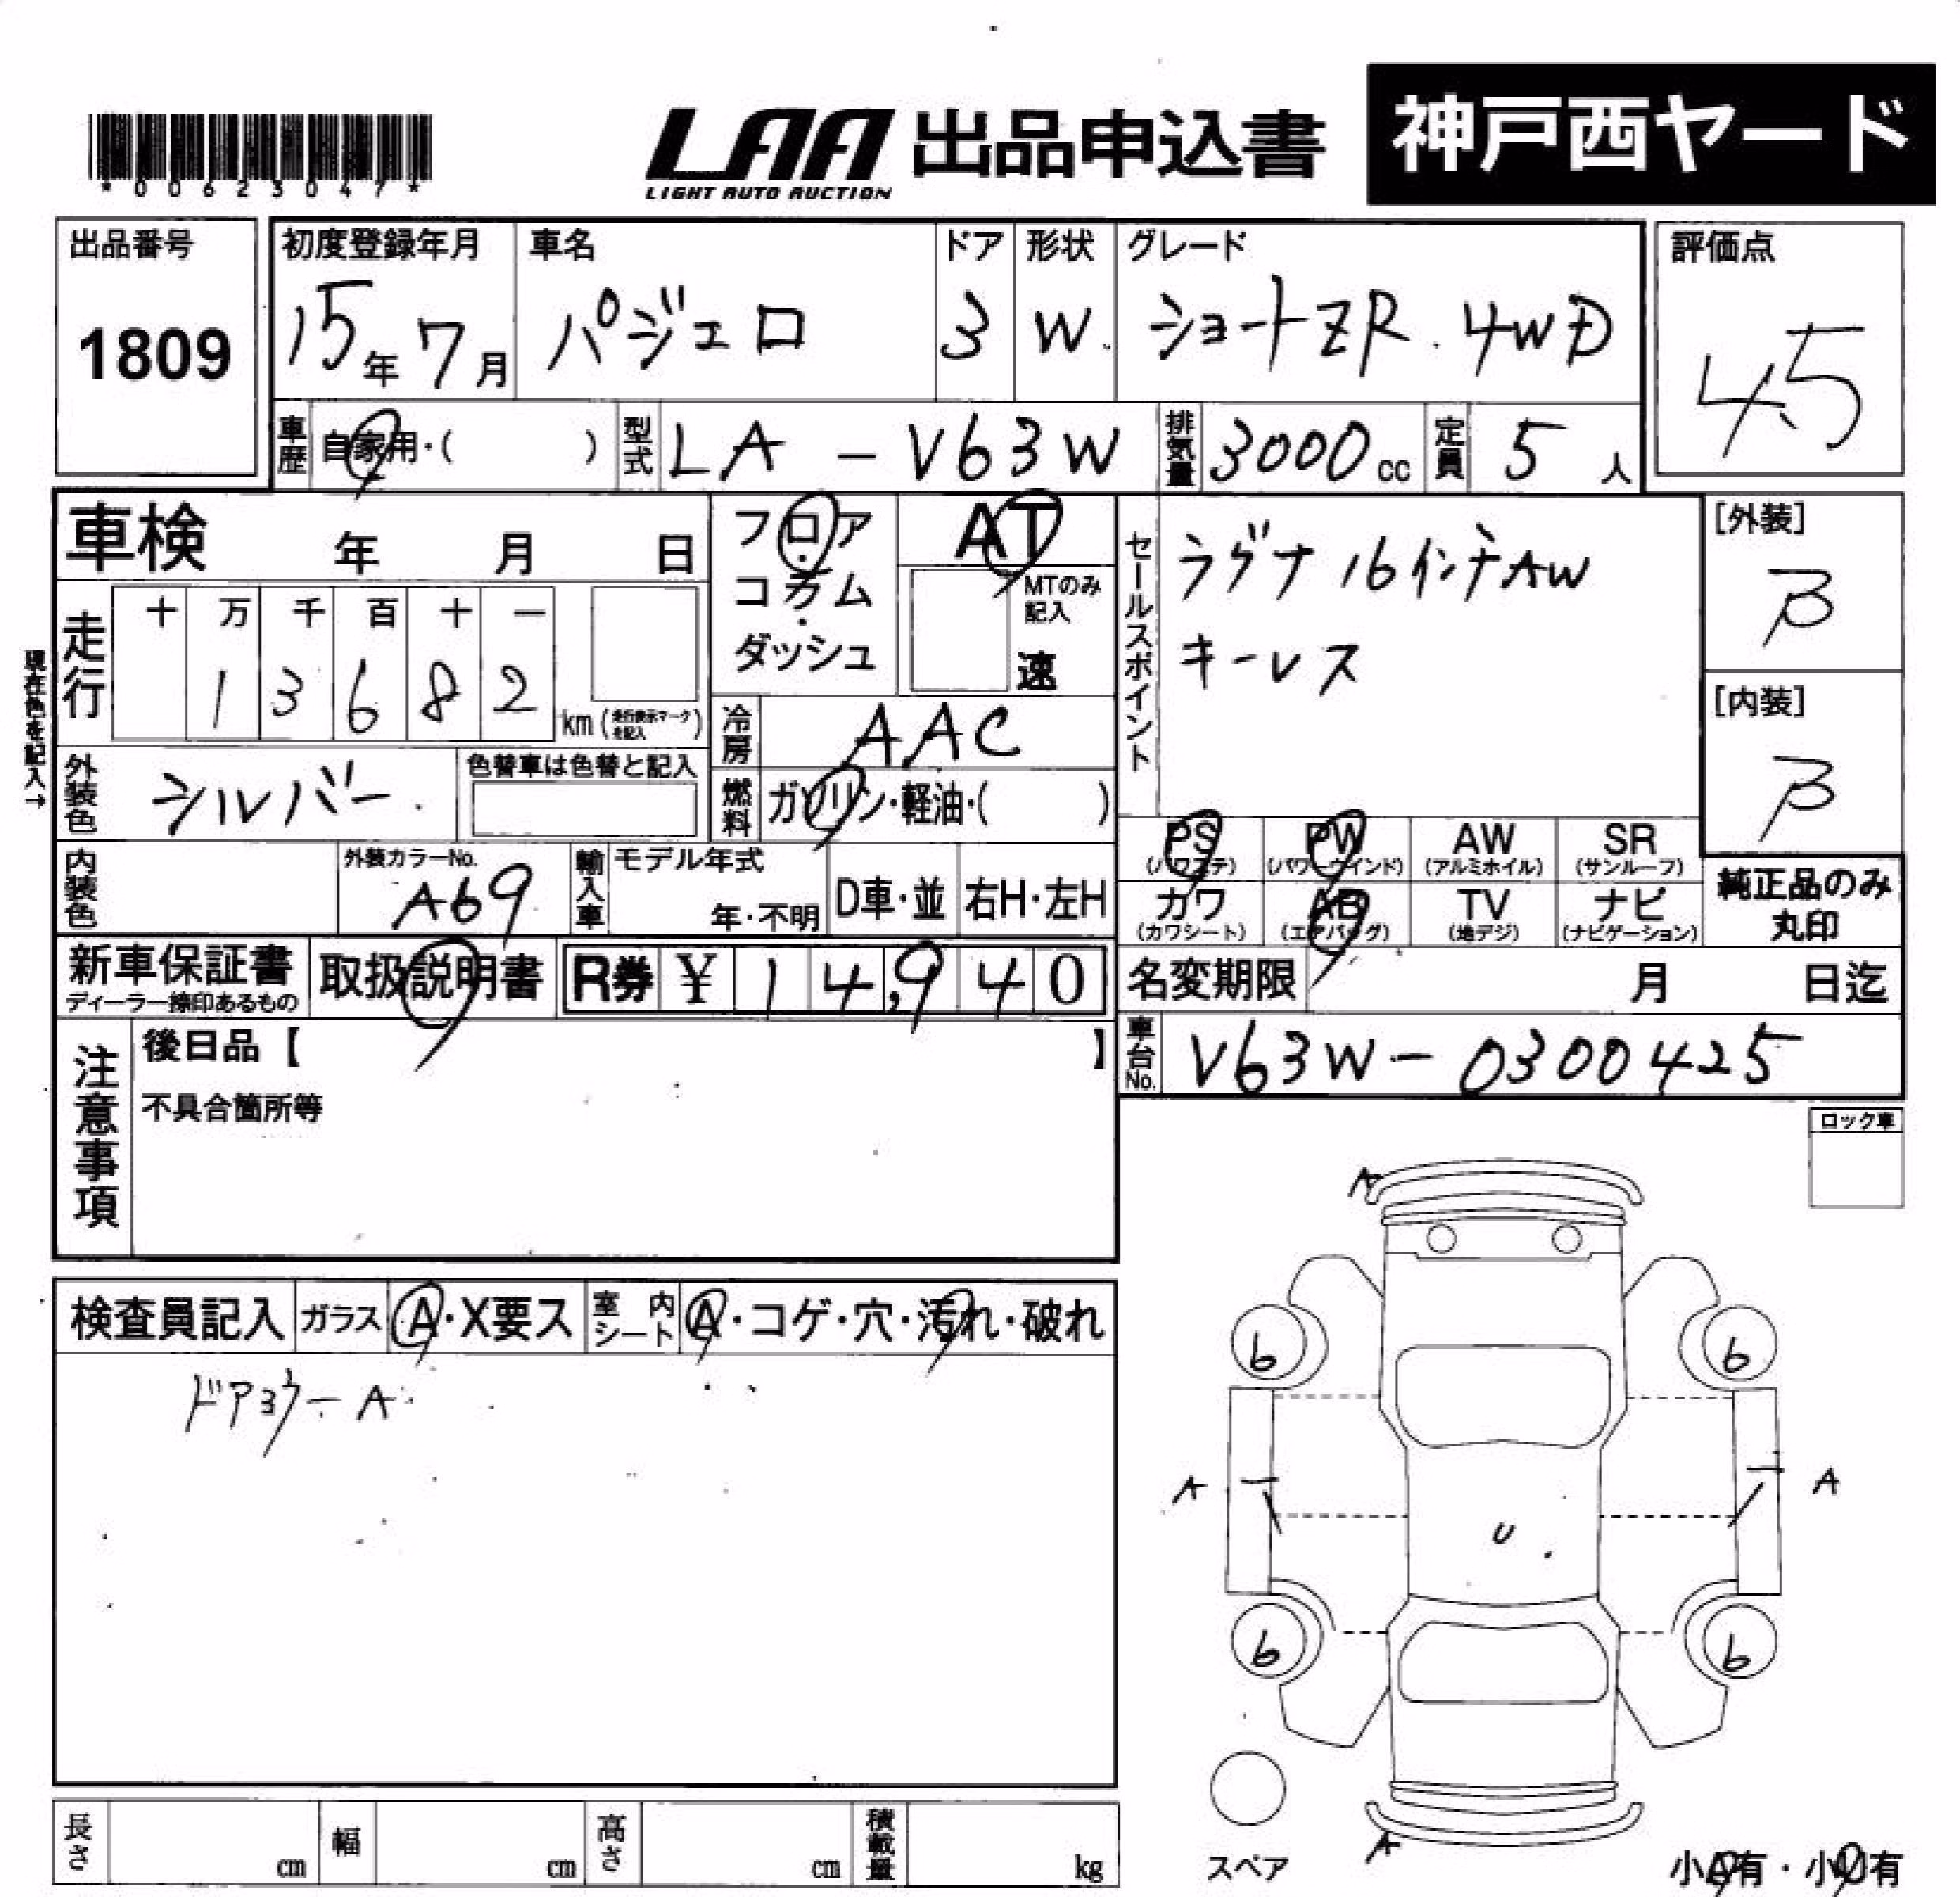 *00623047*
LAA 出品申込書 神戸西ヤード
LIGHT AUTO AUCTION
出品番号 初度登録年月 車名 ドア 形状 グレード 評価点
1809 15年 7月 パジェロ 3 W. ショートZR. 4WD 4.5
車歴 自家用・( ) 型式 LA - V63W 排気量 3000 cc 定員 5 人
車検 年 月 日
フロア・コラム・ダッシュ
AT
MTのみ記入
速
セールスポイント
ラグナ 16インチAW
キーレス
[外装]
B
[内装]
B
現在色を記入→
走行 十 万 千 百 十 一
1 3 6 8 2 km (走行表示マークを記入)
冷房 AAC
外装色 シルバー 色替車は色替と記入
燃料 ガソリン・軽油・( )
PS (パワステ) PW (パワーウインド) AW (アルミホイル) SR (サンルーフ)
カワ (カワシート) AB (エアバッグ) TV (地デジ) ナビ (ナビゲーション)
純正品のみ丸印
内装色 外装カラーNo. A69 輸入車 モデル年式 年・不明 D車・並 右H・左H
新車保証書 ディーラー捺印あるもの 取扱説明書 R券 ¥ 14,940
名変期限 月 日迄
車台No. V63W-0300425
注意事項
後日品【 】
不具合箇所等
ロック車
検査員記入 ガラス A・X要ス 室内シート A・コゲ・穴・汚れ・破れ
A
6 6
A A
U
6 6
スペア
A
長さ cm 幅 cm 高さ cm 積載量 kg
小A有・小U有